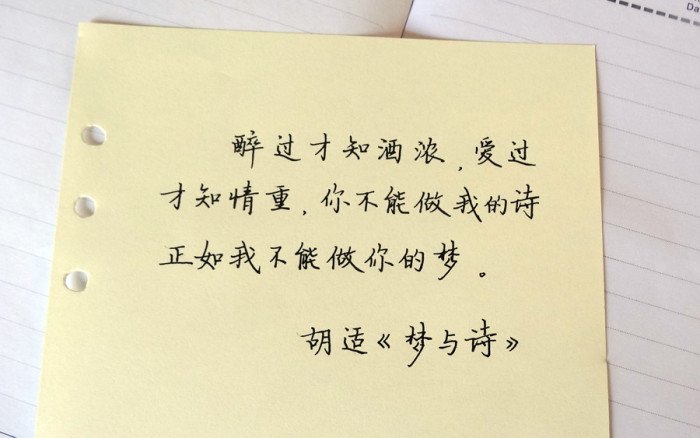 醉过才知酒浓，爱过
才知情重，你不能做我的诗
正如我不能做你的梦。
胡适《梦与诗》
Da